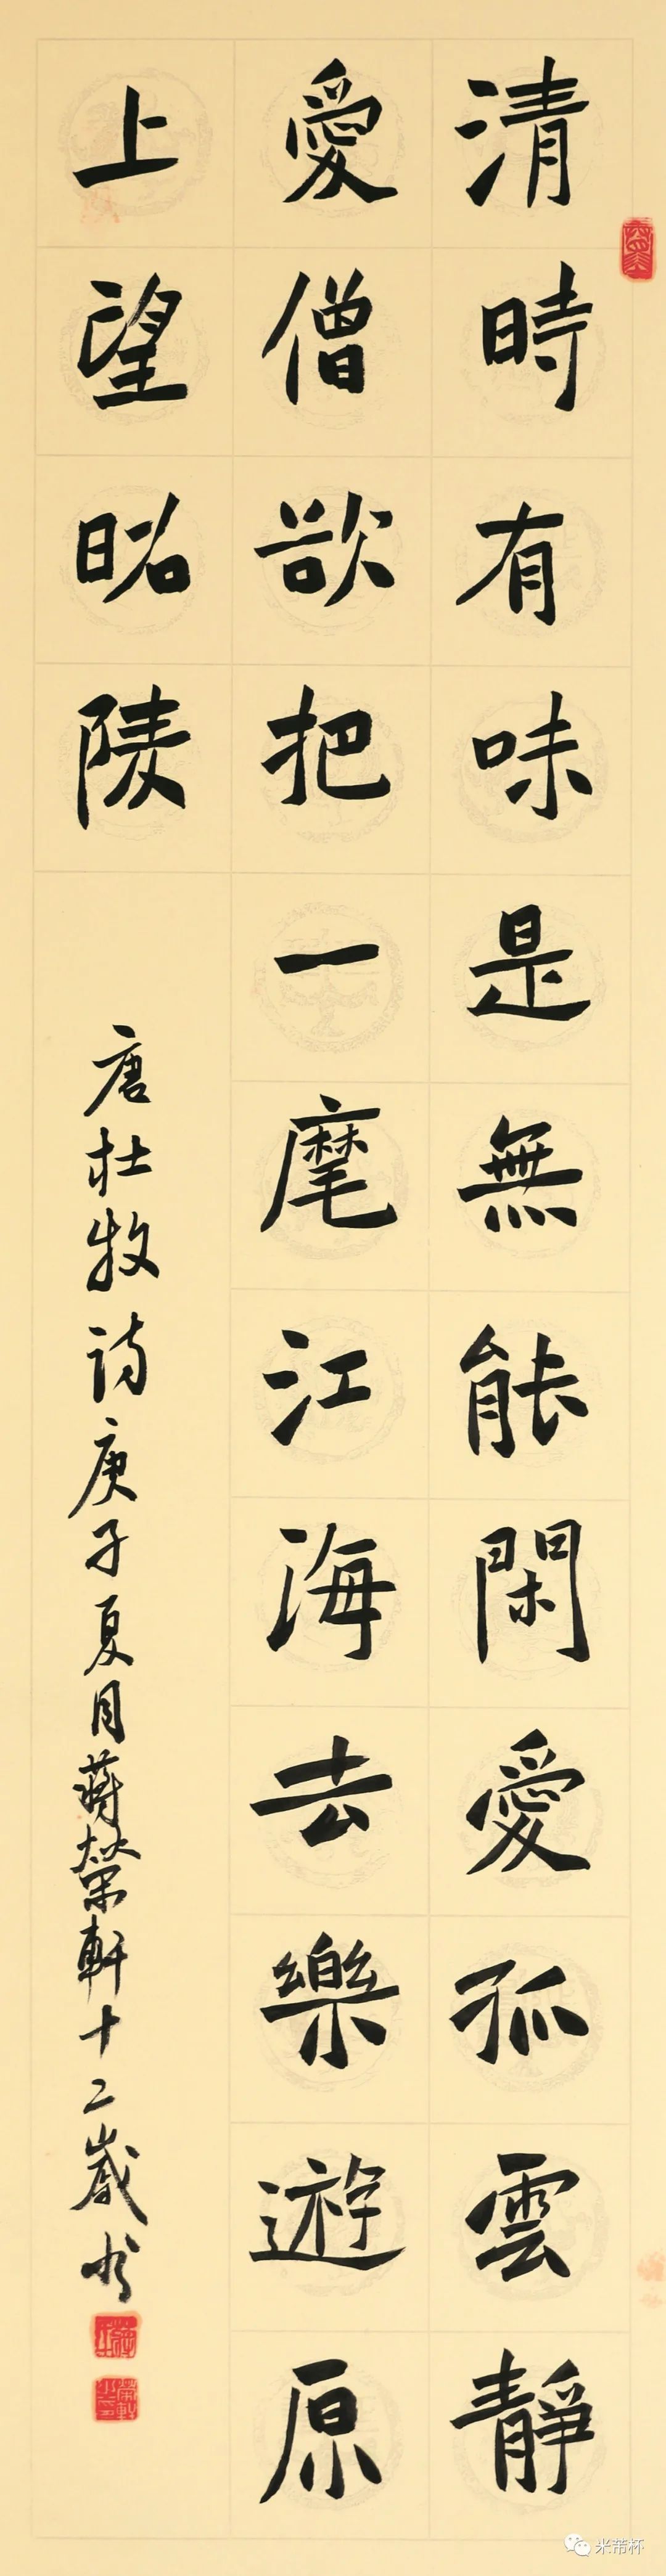 清時有味是無能閑愛孤雲靜
愛僧欲把一麾江海去樂遊原
上望昭陵
唐杜牧詩庚子夏月蔣榮軒十二歲書
米芾杯